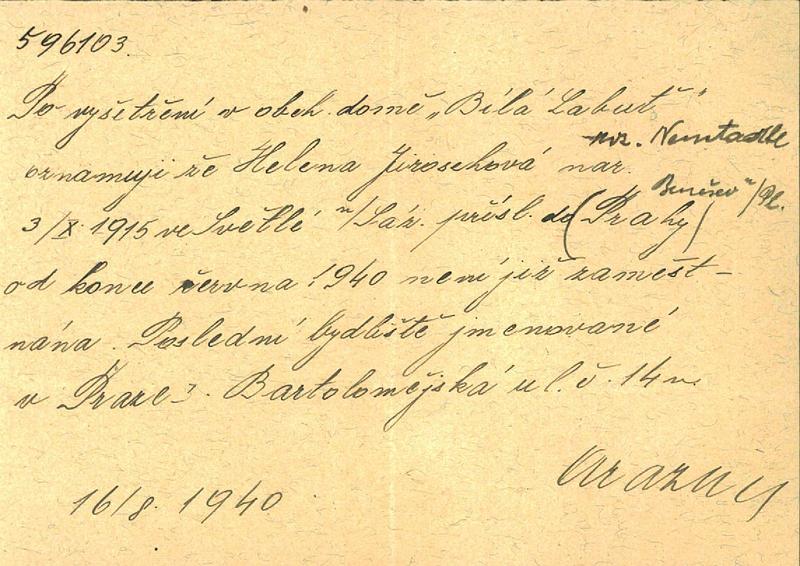 596103.
Po vyšetření v obch. domě „Bílá Labuť"
roz. Neustadtl
oznamuji že Helena Jiroschová nar.
Benešov n/Pl.
3/X. 1915 ve Světlé n/Sáz. přísl. do (Prahy)
od konce června 1940 není již zaměst-
nána. Poslední bydliště jmenované
v Praze I. Bartolomějská ul. č. 14n.
16/8. 1940